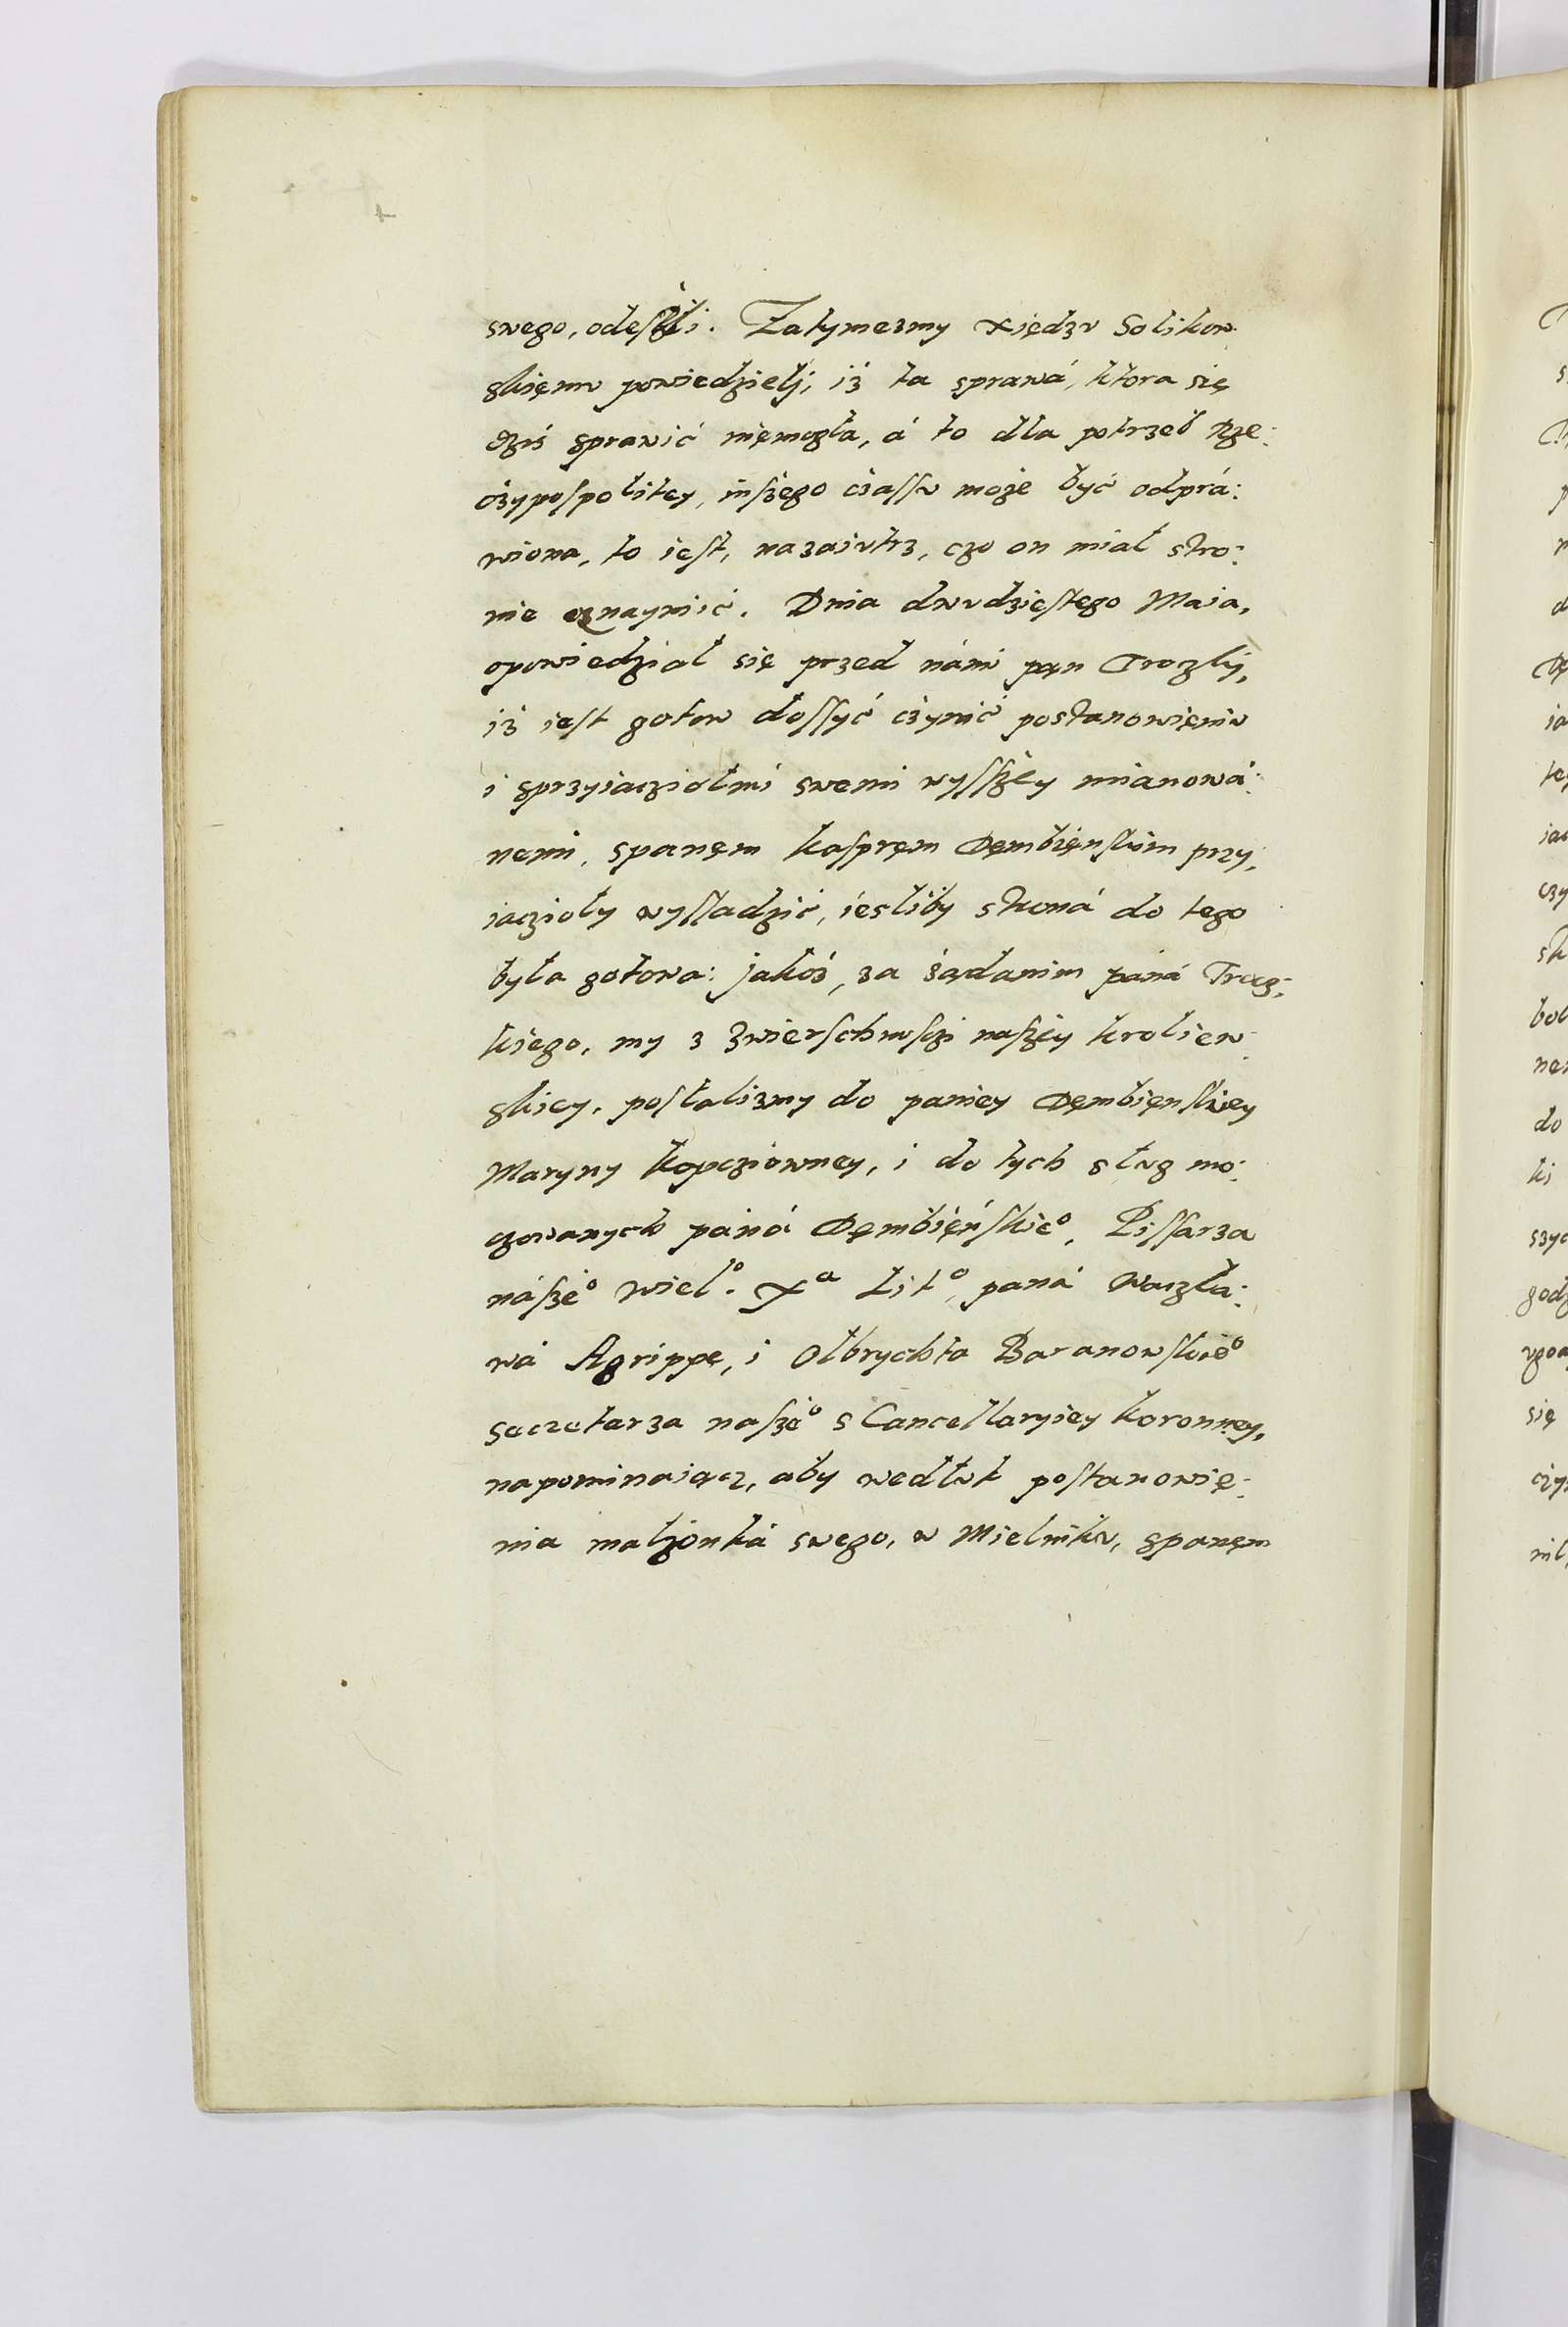 swego, odeſßli. Zatymeszmy xiędzv Solikow
skięmv powiedzielj, iż ta sprawá, ktora się
dziś sprawić niemogła, á to dla potrzeb Rze:
czypoſpolitey, inßego cżaſſv może być odprá:
wiona, to ieſt, nazaivtrz, czo on miał stro:
nie oznaymić. Dnia dwvdzieſtego Maia,
opowiedział się przed námi pan Troczkj,
iż ieſt gotow doſſyć cżynić postanowięniv
i sprzyiacziołmi swemi wyſſzey mianowá:
nemi, spanęm Kaſpręm Dęmbięnſkim przy:
iaczioły wyſſadzić, iesliby stroná do tego
była gotowa: jakoż, za żądanim páná Trocz:
kiego, my z zwierſchnoſczi naſzey kroliew
skiey, poſłalismy do paniey Dęmbięnſkiey
Maryny Kopcziowney, i do tych slvg mo:
czowanych páná Dęmbięńſkieº, Piſſarza
nászeº Wielº. Xª Litº, paná Waczła:
wá Agrippę, i Olbrychta Baranowſkieº
secretarza naſzeº s Cancellaryiey Koronney,
napominaiącz, aby wedlvk poſtanowię:
nia małżonká swego, w Mielnikv, spanęm